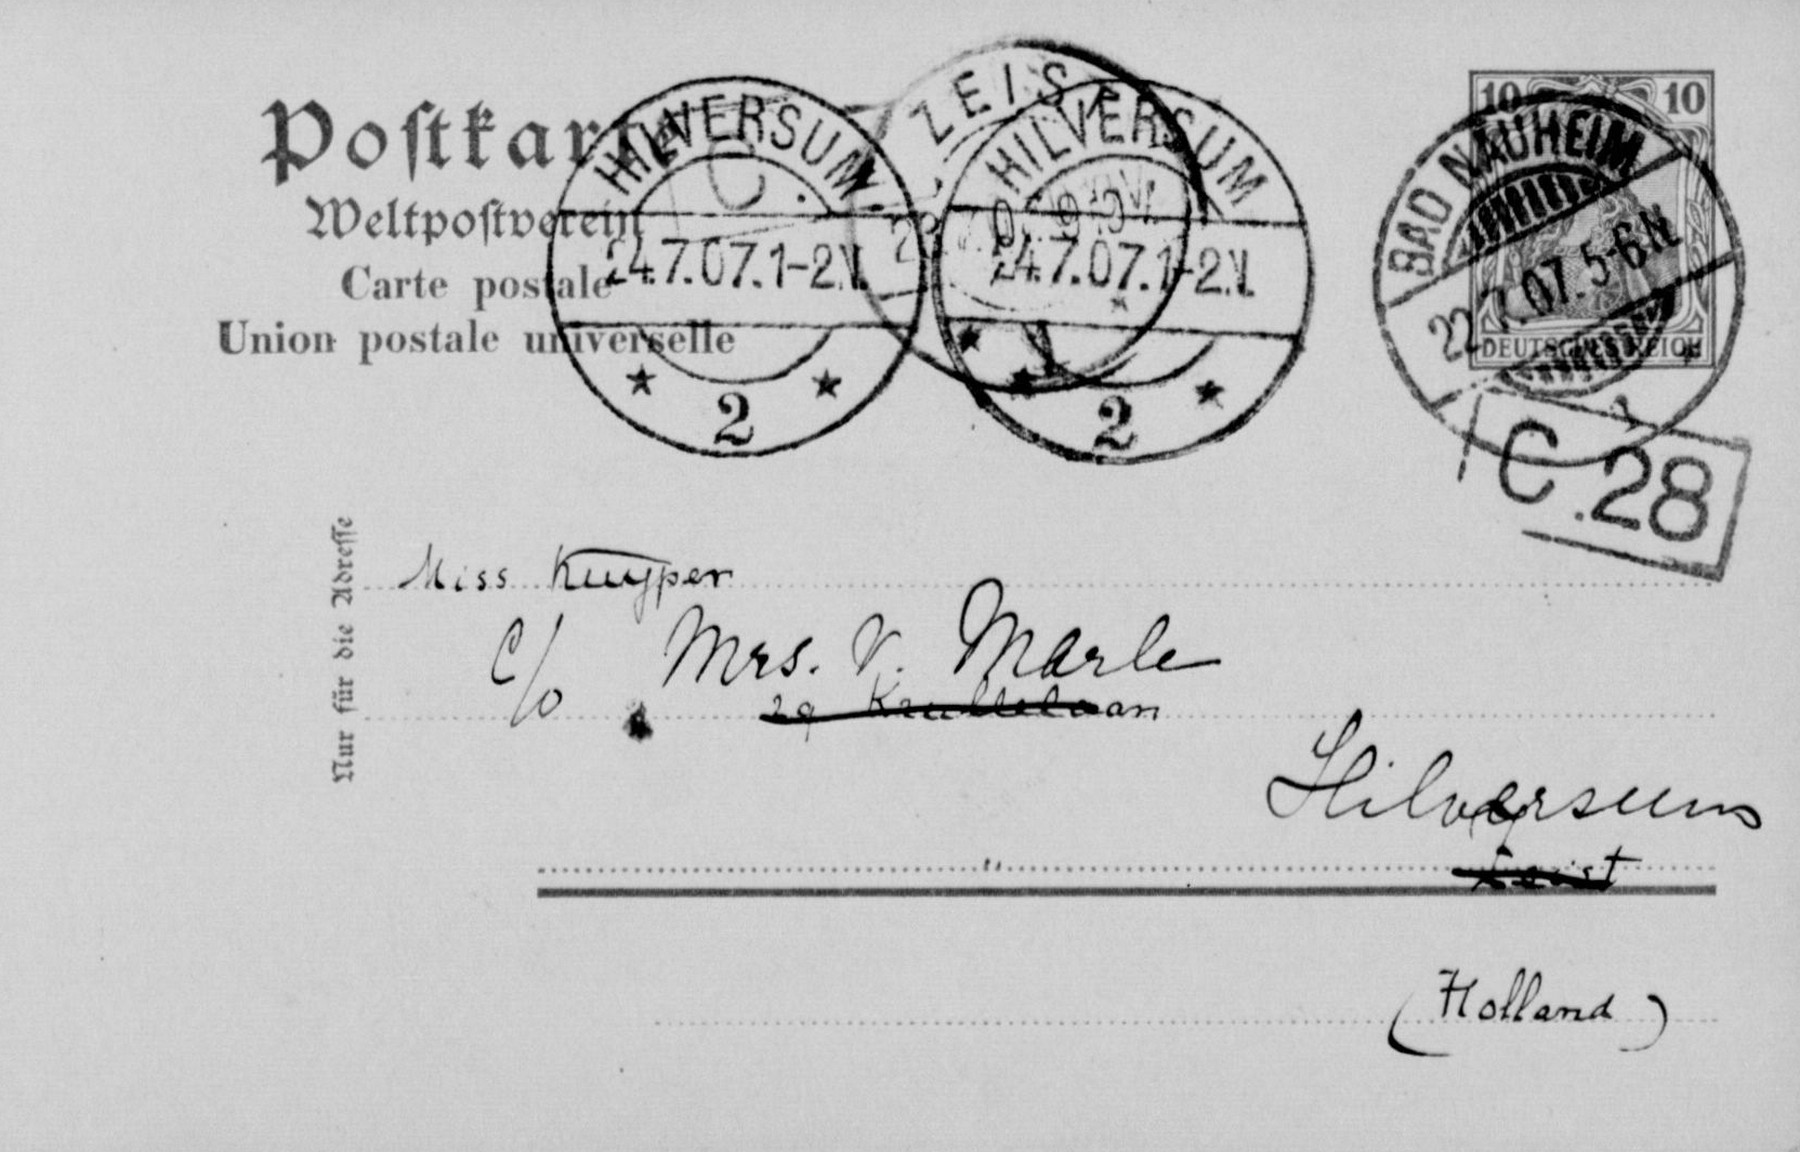 Postkarte
Weltpostverein
Carte postale
Union postale universelle
HILVERSUM
24.7.07.1-2.V.
2
ZEIST
HILVERSUM
24.7.07.1-2.V.
2
10 10
DEUTSCHES REICH
BAD NAUHEIM
22.7.07.5-6N.
C.28
Nur für die Adresse
Miss Kuyper
c/o Mrs. v. Marle
29 Krullelaan
Hilversum
Zeist
(Holland)